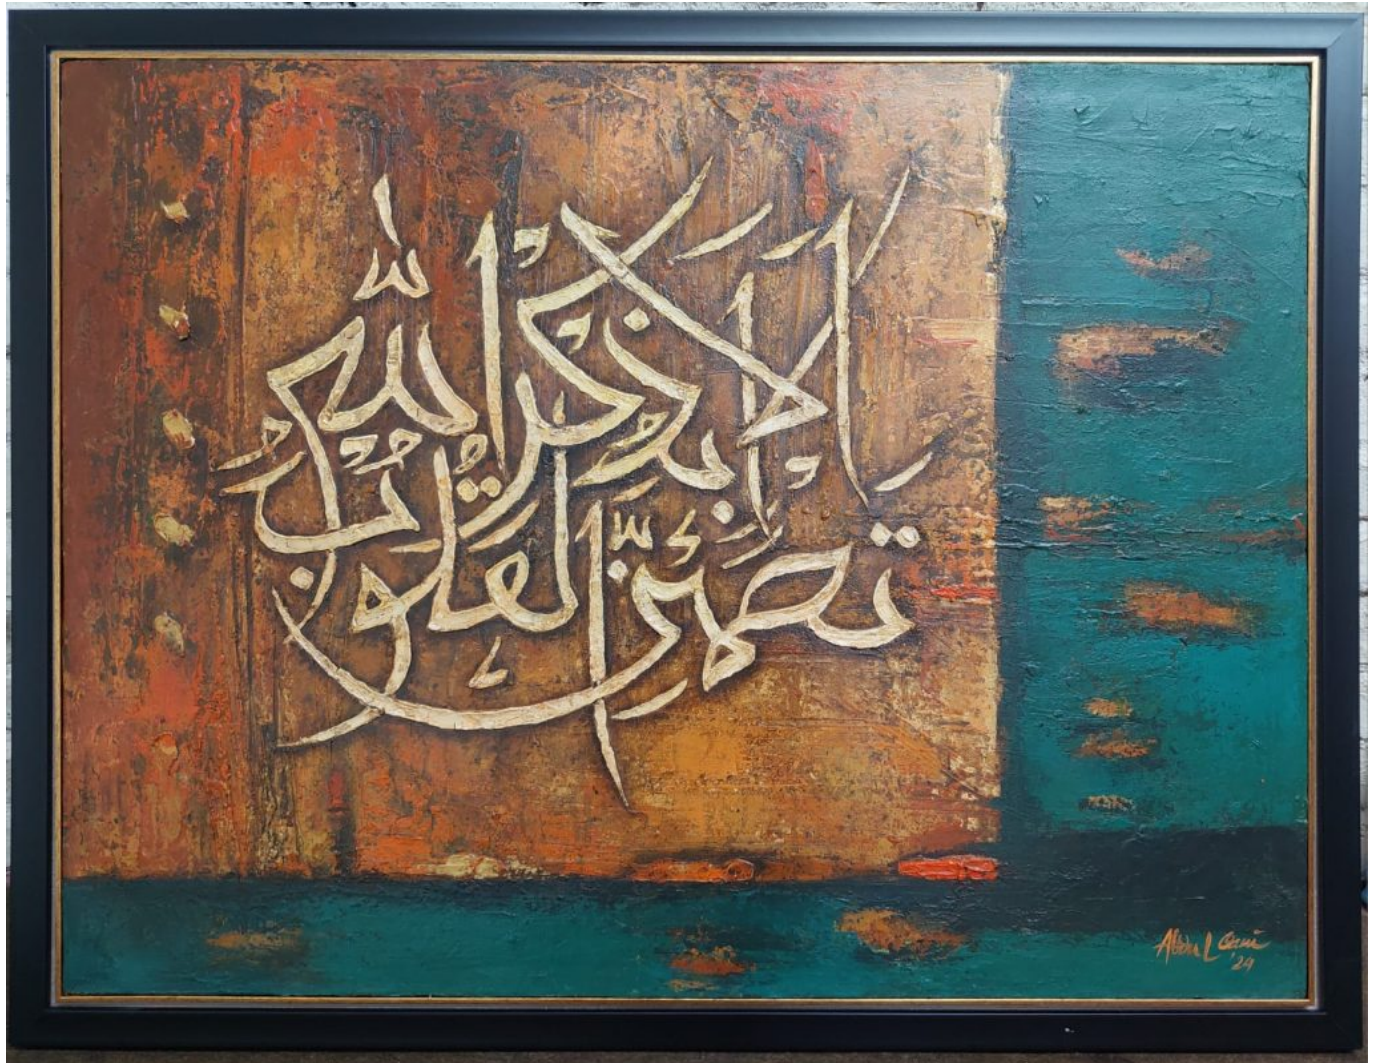 ألا بذكر الله
تطمئن القلوب
Abdul
'24